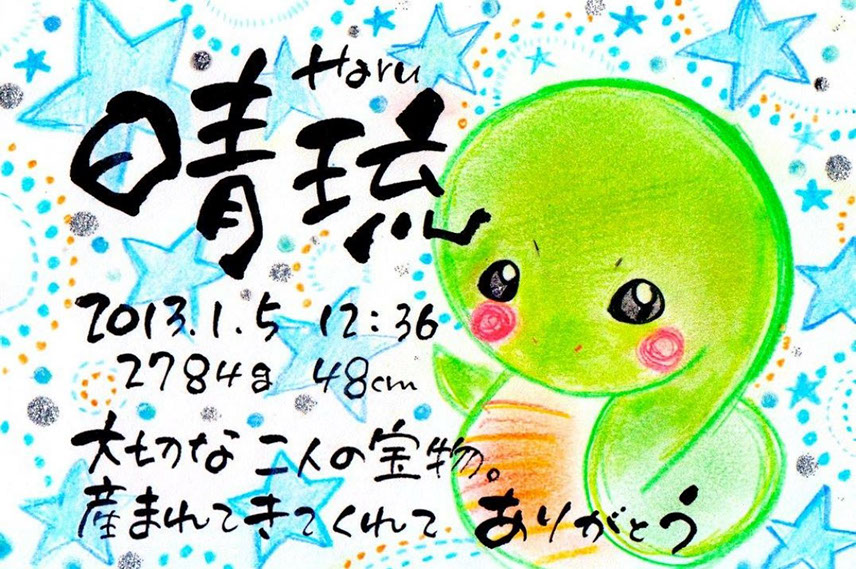 Haru
晴琉
2013.1.5 12:36
2784g 48cm
大切な 二人の宝物。
産まれてきてくれて ありがとう